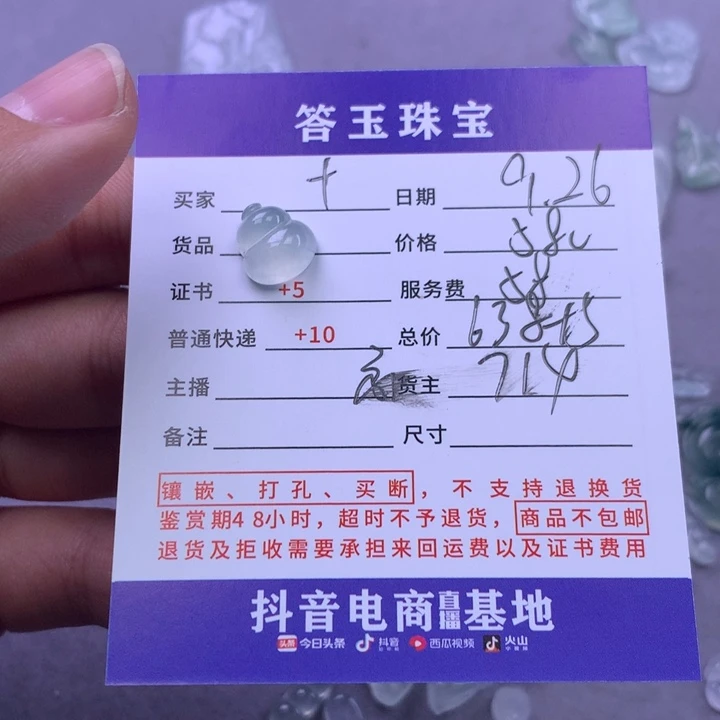 答玉珠宝
买家 十 日期 9.26
货品 价格 580
证书 +5 服务费 58
普通快递 +10 总价 638+15
主播 货主 714
备注 尺寸
镶嵌、打孔、买断，不支持退换货
鉴赏期48小时，超时不予退货，商品不包邮
退货及拒收需要承担来回运费以及证书费用
抖音电商直播基地
头条 今日头条 抖音 西瓜视频 火山